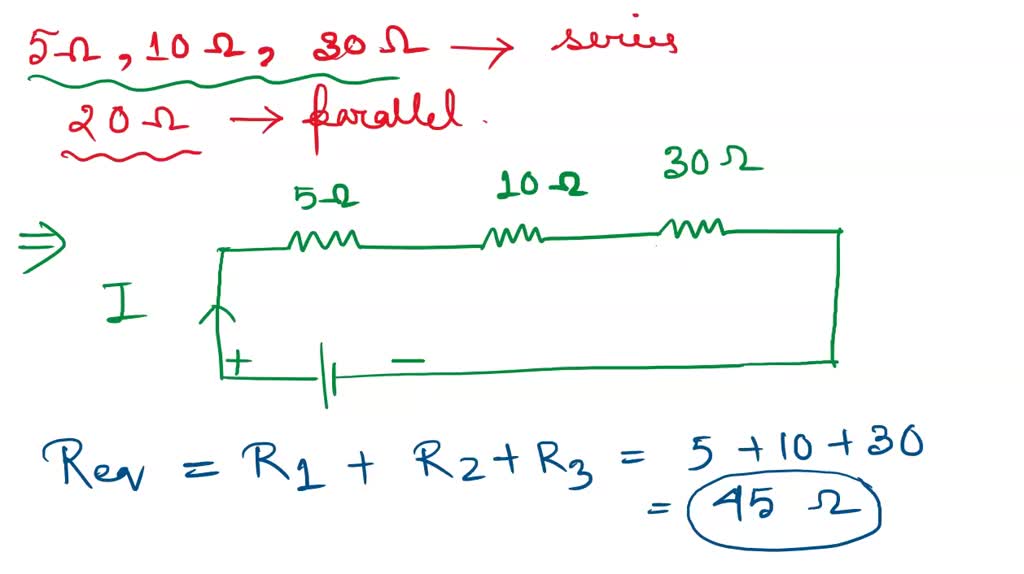 5Ω, 10Ω, 30Ω → series
20Ω → parallel.
5Ω 10Ω 30Ω
⇒
I
+ −
Rev = R1 + R2 + R3 = 5 + 10 + 30
= 45 Ω